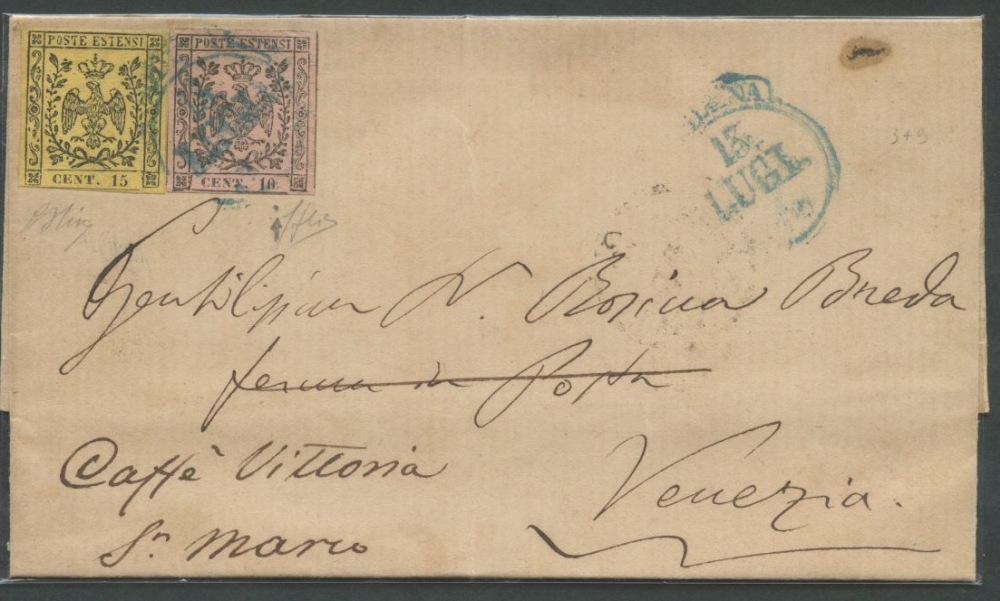 POSTE ESTENSI
CENT. 15
POSTE ESTENSI
CENT. 10
13
LUGL
3+9
N. Rosina Breda
ferma in Posta
Caffè Vittoria
Sn Marco
Venezia.